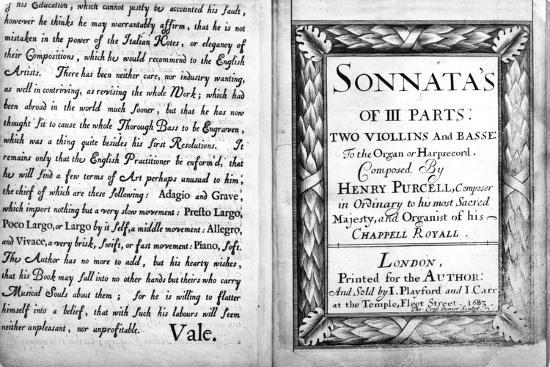 of his Education, which cannot justly be accounted his fault,
however he thinks he may warrantably affirm, that he is not
mistaken in the power of the Italian Notes, or elegancy of
their Compositions, which he would recommend to the English
Artists. There has been neither care, nor industry wanting,
as well in contriving, as revising the whole Work; which had
been abroad in the world much sooner, but that he has now
thought fit to cause the whole Thorough Bass to be Engraven,
which was a thing quite besides his first Resolutions. It
remains only that the English Practitioner be enform'd, that
he will find a few terms of Art perhaps unusual to him,
the chief of which are these following: Adagio and Grave,
which import nothing but a very slow movement: Presto Largo,
Poco Largo, or Largo by it self, a middle movement: Allegro,
and Vivace, a very brisk, swift, or fast movement: Piano, soft.
The Author has no more to add, but his hearty wishes,
that his Book may fall into no other hands but theirs who carry
Musical Souls about them; for he is willing to flatter
himself into a belief, that with such his labours will seem
neither unpleasant, nor unprofitable. Vale.
SONNATA'S
OF III PARTS:
TWO VIOLLINS And BASSE:
To the Organ or Harpsecord.
Composed By
HENRY PURCELL, Composer
in Ordinary to his most Sacred
Majesty, and Organist of his
CHAPPELL ROYALL.
LONDON,
Printed for the AUTHOR:
And Sold by I. Playford and I. Carr
at the Temple, Fleet Street. 1683.
Tho. Cross Junior Sculpt.